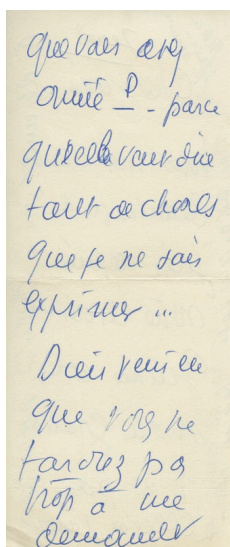 que vous avez
omise P - parce
qu'elle veut dire
tant de choses
que je ne sais
exprimer ...
Dieu veuille
que vous ne
tardiez pas
trop à me
demander